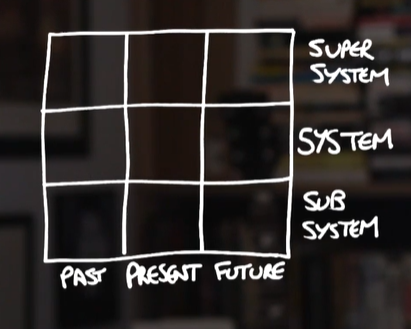 SUPER
SYSTEM
SYSTEM
SUB
SYSTEM
PAST PRESENT FUTURE